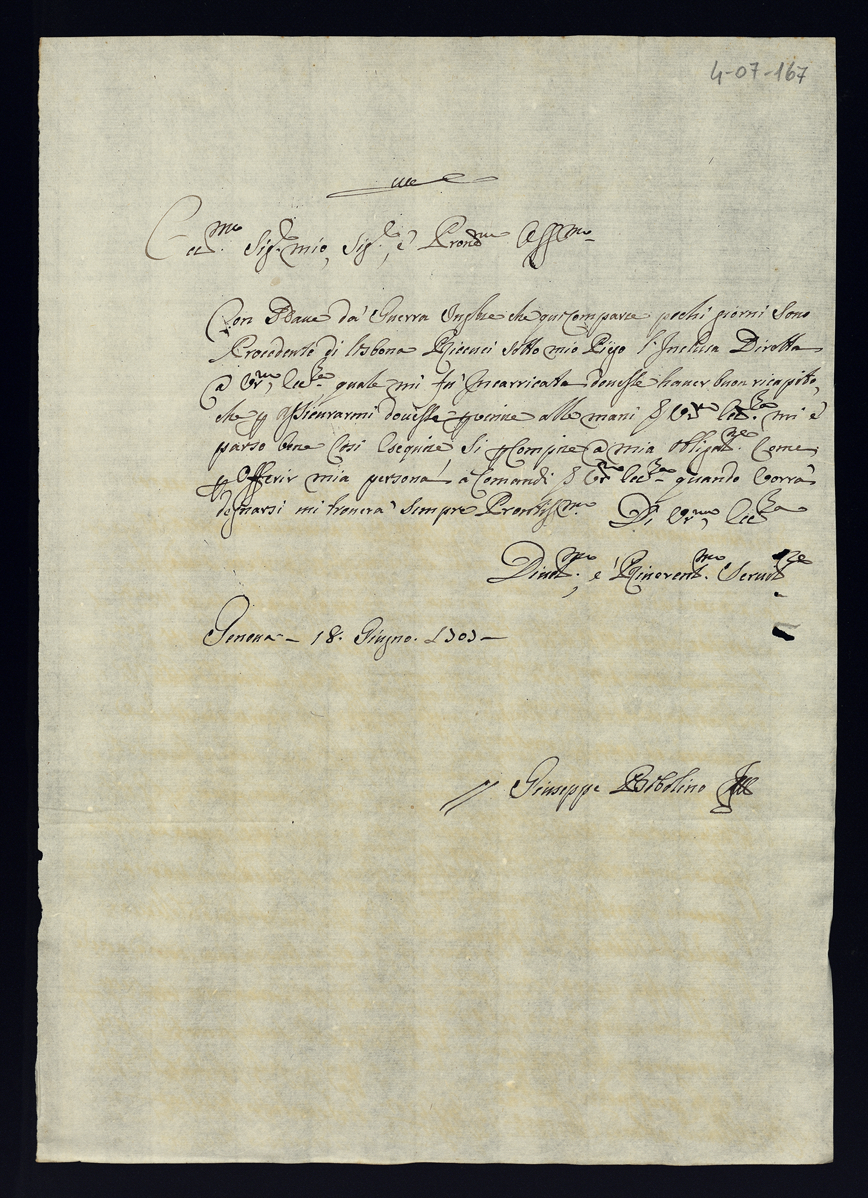 4-07-167
Ecc.mo Sig.r mio, Sig.r, e Pron. Oss.mo
Con Nave da Guerra Inglese che qui Comparve pochi giorni Sono
Procedente di Lisbona Riceuei Sotto mio Pigo l'Inclusa Diretta
a Vr.a, Ecc.za quale mi fu Incarricata douesse hauer buon ricapito,
che p assicurarmi douesse peruenire alle mani di Vr.a Ecc.za mi è
parso bene Cosi Eseguire Si p Compire a mia obligat.ne Come
p Offerir mia persona a Comandi di Vr.a Ecc.za quando Vorrà
degnarsi mi trouerà Sempre Prontiss.mo Di Vr.a, Ecc.za
Diuot.mo, e Riuerent.mo Seruit.re
Genoua - 18. Giugno. 1703 -
// Giuseppe Bobolino